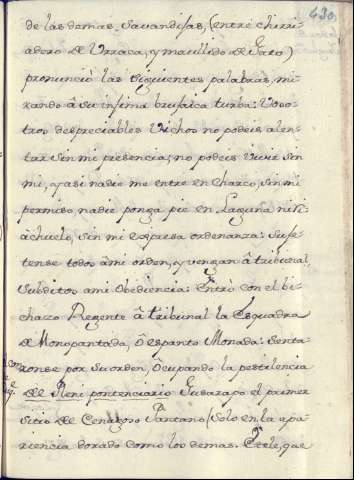 430.
de las demas Savandisas, (entre chirri-
adero de Urraca, y maullido de Gato)
pronunciò las siguientes palabras, mi-
rando â su infima brusaica turba: Voso-
tros despreciables Vichos no podeis alen-
tar sin mi presencia, no podeis vivir sin
mi, y asi nadie me entre en charco, sin mi
permiso, nadie ponga pie en Laguna, ni ri-
âchuelo, sin mi expresa ordenanza: Suge-
tense todos âmi orden, y vengan â tribunal
subditos ami Obediencia: Entrò con el bi-
chazo Regente â tribunal la Esquadra
de Monopantada, ô espanto Monada: Senta-
ronse por su orden, ôcupando la pestilencia
del Reni pontenciario Gusarapo el primer
sitio del Cenagoso Pantano (solo en la apa-
riencia dorado como los demas. Ezele, que